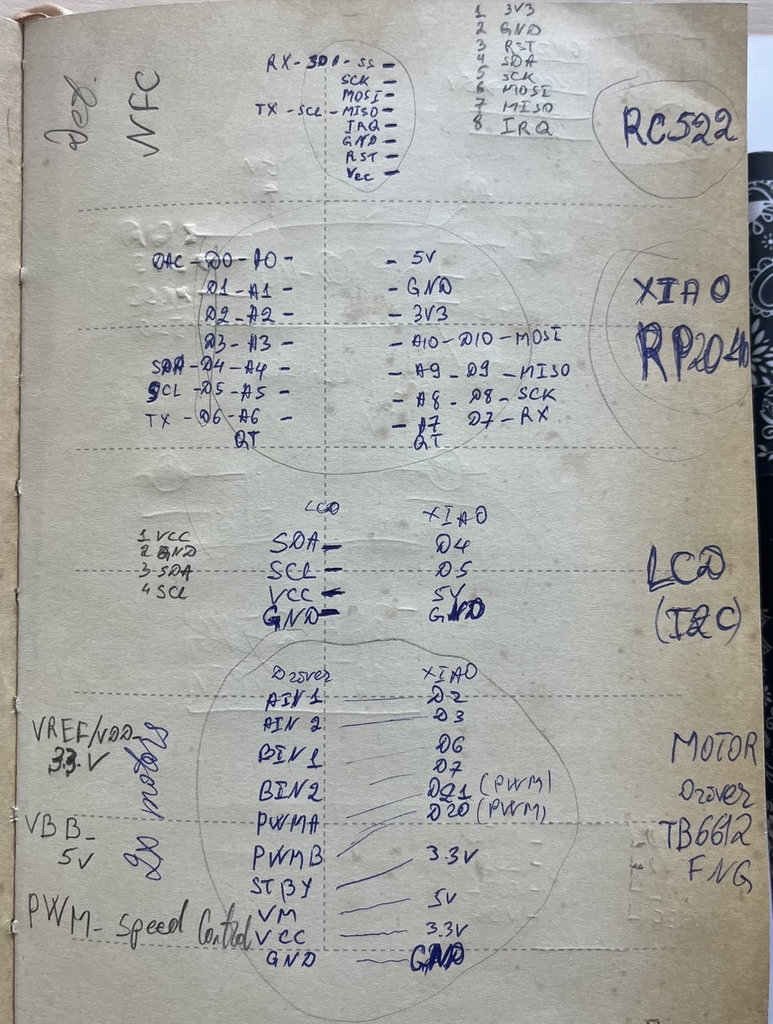 1 3V3
2 GND
3 RST
4 SDA
5 SCK
6 MOSI
7 MISO
8 IRQ
NFC
RX - SDA - SS -
SCK -
MOSI -
TX - SCL - MISO -
IRQ -
GND -
RST -
Vcc -
RC522
DAC - D0 - A0 - - 5V
D1 - A1 - - GND
D2 - A2 - - 3V3
D3 - A3 - - A10 - D10 - MOSI
SDA - D4 - A4 - - A9 - D9 - MISO
SCL - D5 - A5 - - A8 - D8 - SCK
TX - D6 - A6 - - A7 D7 - RX
QT QT
XIAO
RP2040
LCD XIAO
1 VCC
2 GND
3 SDA
4 SCL
SDA - D4
SCL - D5
VCC - 5V
GND - GND
LCD
(I2C)
Driver XIAO
AIN1 — D2
AIN2 — D3
BIN1 — D6
BIN2 — D7
PWMA — D21 (PWM)
PWMB — D20 (PWM)
STBY — 3.3V
VM — 5V
VCC — 3.3V
GND — GND
VREF/VDD -
3.3.V
2x motors
VBB -
5V
PWM - Speed Control
MOTOR
Driver
TB6612
FNG